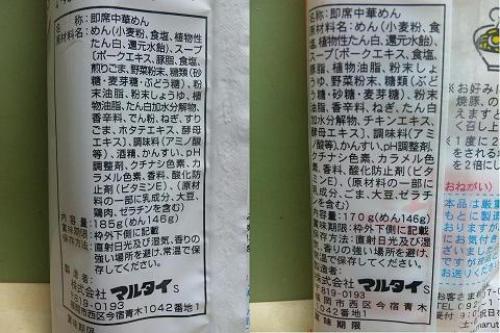 名称：即席中華めん
原材料名：めん(小麦粉、食塩、植物性
たん白、還元水飴)、スープ
〔ポークエキス、豚脂、食塩、
煎りごま、野菜粉末、糖類(砂
糖・麦芽糖・ぶどう糖)、粉
末油脂、粉末しょうゆ、植
物油脂、たん白加水分解物、
香辛料、でん粉、ねぎ、すり
ごま、ホタテエキス、酵母
エキス〕、調味料(アミノ酸
等)、酒精、かんすい、pH
調整剤、クチナシ色素、カラ
メル色素、香料、酸化防止
剤(ビタミンE)、(原材
料の一部に乳成分、大豆、
鶏肉、ゼラチンを含む)
内容量：185g(めん146g)
賞味期限：枠外下側に記載
保存方法：直射日光及び湿気、香りの
強い場所を避け、常温で保
存してください。
製造者：
株式会社 マルタイ S
〒819-0193
福岡市西区今宿青木1042番地1
賞味期限
名称：即席中華めん
原材料名：めん(小麦粉、食塩、植物
性たん白、還元水飴)、スープ
〔ポークエキス、食塩、
豚脂、植物油脂、粉末しょ
うゆ、野菜粉末、糖類(ぶど
う糖・砂糖・麦芽糖)、粉末
油脂、香辛料、ねぎ、たん白
加水分解物、チキンエキス、
酵母エキス〕、調味料(アミノ
酸等)、かんすい、pH調整剤、
クチナシ色素、カラメル色
素、香料、酸化防止剤(ビタ
ミンE)、(原材料の一部に
乳成分、ごま、大豆、
ゼラチンを含む)
内容量：170g(めん146g)
賞味期限：枠外下側に記載
保存方法：直射日光及び湿気、香
りの強い場所を避け、常温で保存
してください。
製造者：
株式会社 マルタイ S
〒819-0193
福岡市西区今宿青木1042番地1
賞味期限
お好みに
焼豚、の
えますと
召し
1度に2
をされる
を2倍に
おねがい
本品は厳重
もとに製造
お気付き
ございまし
ですが
お送りくだ